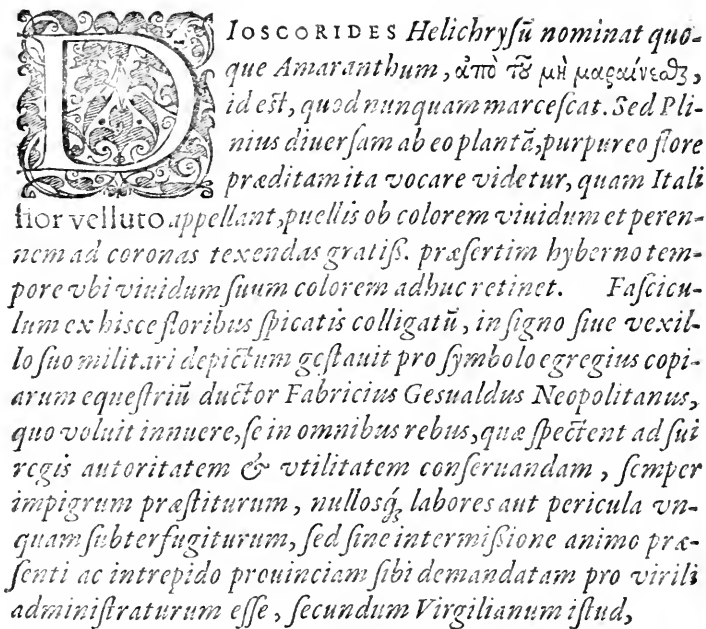 DIOSCORIDES Helichryſũ nominat quo-
que Amaranthum, ἀπὸ τοῦ μὴ μαραίνεσθαι,
id eſt, quod nunquam marceſcat. Sed Pli-
nius diuerſam ab eo plantã, purpureo flore
præditam ita vocare videtur, quam Itali
fior velluto appellant, puellis ob colorem viuidum et peren-
nem ad coronas texendas gratiſs. præſertim hyberno tem-
pore vbi viuidum ſuum colorem adhuc retinet. Faſcicu-
lum ex hisce floribus ſpicatis colligatũ, in ſigno ſiue vexil-
lo ſuo militari depictum geſtauit pro ſymbolo egregius copi-
arum equeſtriũ ductor Fabricius Gesualdus Neopolitanus,
quo voluit innuere, ſe in omnibus rebus, quæ ſpectent ad ſui
regis autoritatem & vtilitatem conſeruandam, ſemper
impigrum præſtiturum, nullosq́; labores aut pericula vn-
quam ſubterfugiturum, ſed ſine intermiſsione animo præ-
ſenti ac intrepido prouinciam ſibi demandatam pro virili
adminiſtraturum eſſe, ſecundum Virgilianum iſtud,